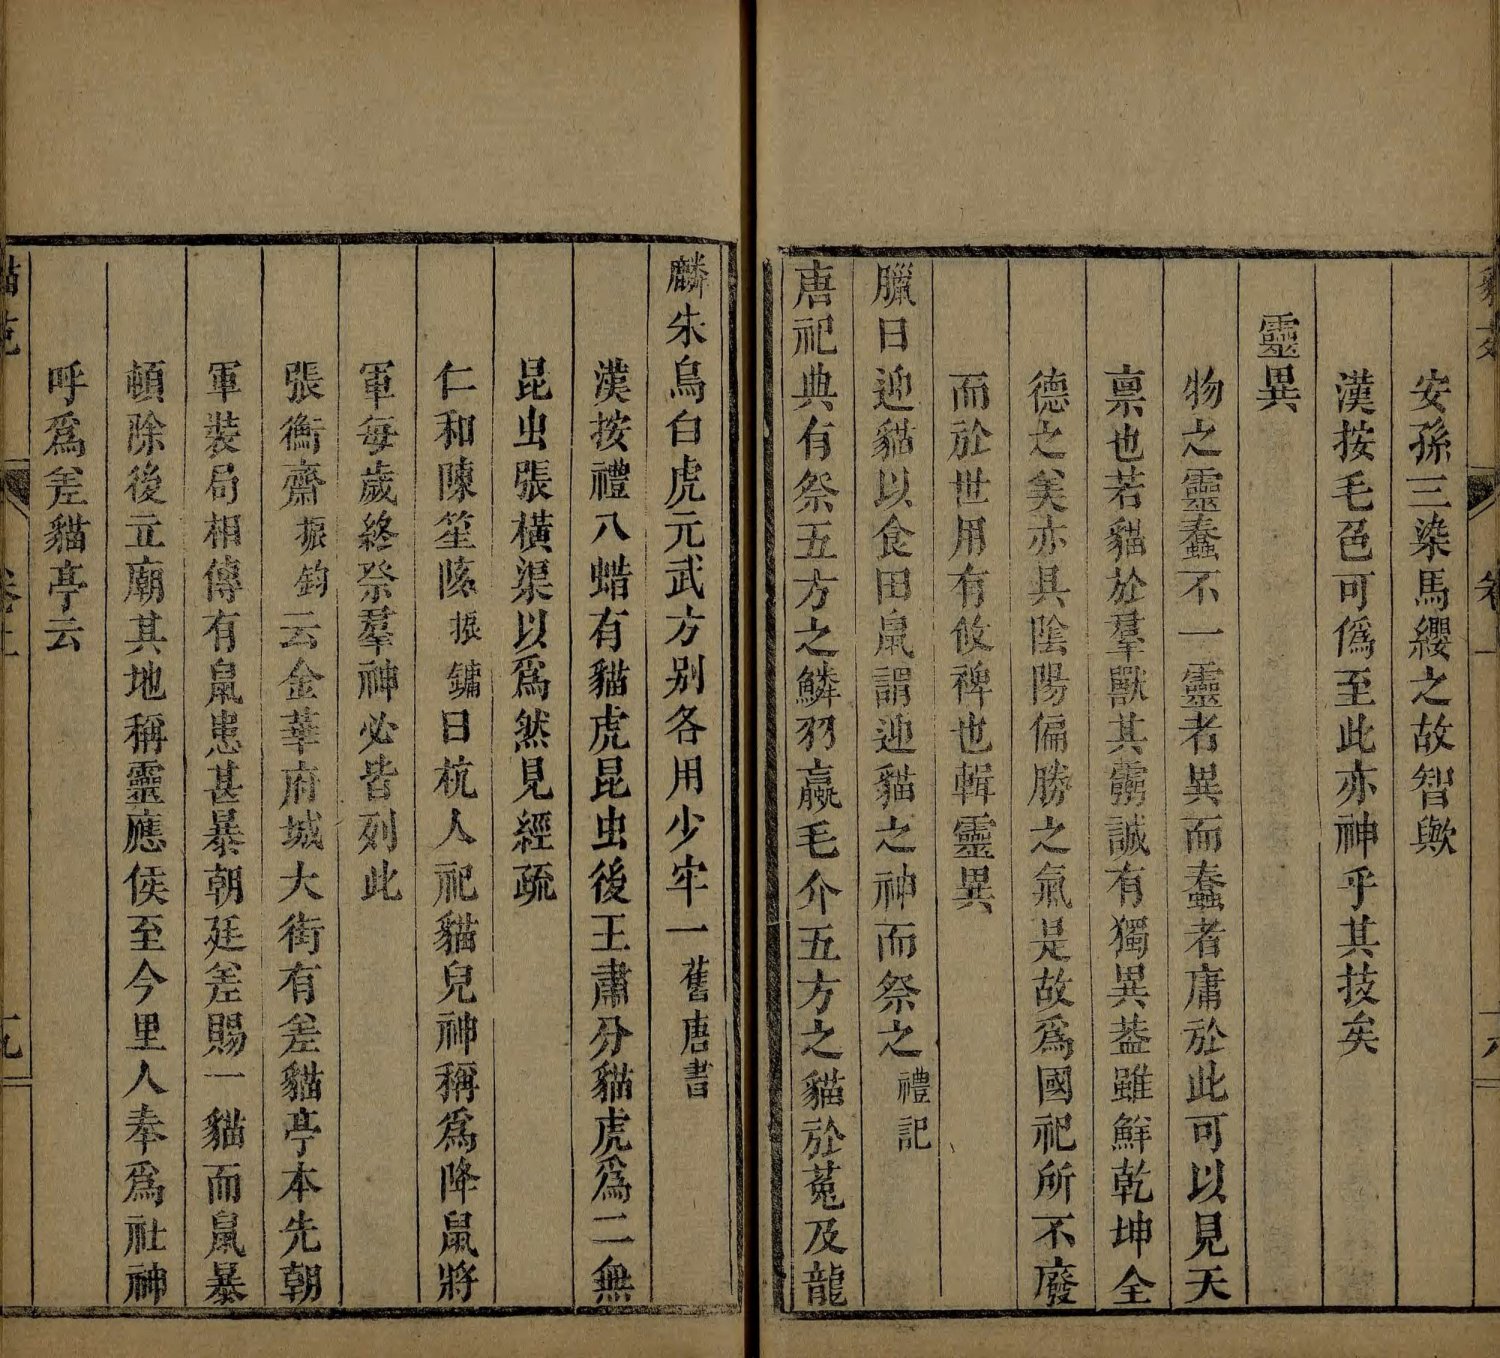 安孫三染馬纓之故智歟
漢按毛色可僞至此亦神乎其技矣
靈異
物之靈蠢不一靈者異而蠢者庸於此可以見天
禀也若貓於羣獸其靈誠有獨異葢雖鮮乾坤全
德之美亦具陰陽偏勝之氣是故爲國祀所不廢
而於世用有攸裨也輯靈異
臘日迎貓以食田鼠謂迎貓之神而祭之禮記
唐祀典有祭五方之鱗羽蠃毛介五方之貓於菟及龍
麟朱鳥白虎元武方别各用少牢一舊唐書
漢按禮八蜡有貓虎昆虫後王肅分貓虎爲二無
昆虫張橫渠以爲然見經疏
仁和陳笙陔振鏞曰杭人祀貓兒神稱爲降鼠將
軍每歲終祭羣神必皆列此
張衡齋振鈞云金華府城大街有差貓亭本先朝
軍裝局相傳有鼠患甚暴朝廷差賜一貓而鼠暴
頓除後立廟其地稱靈應侯至今里人奉爲社神
呼爲差貓亭云